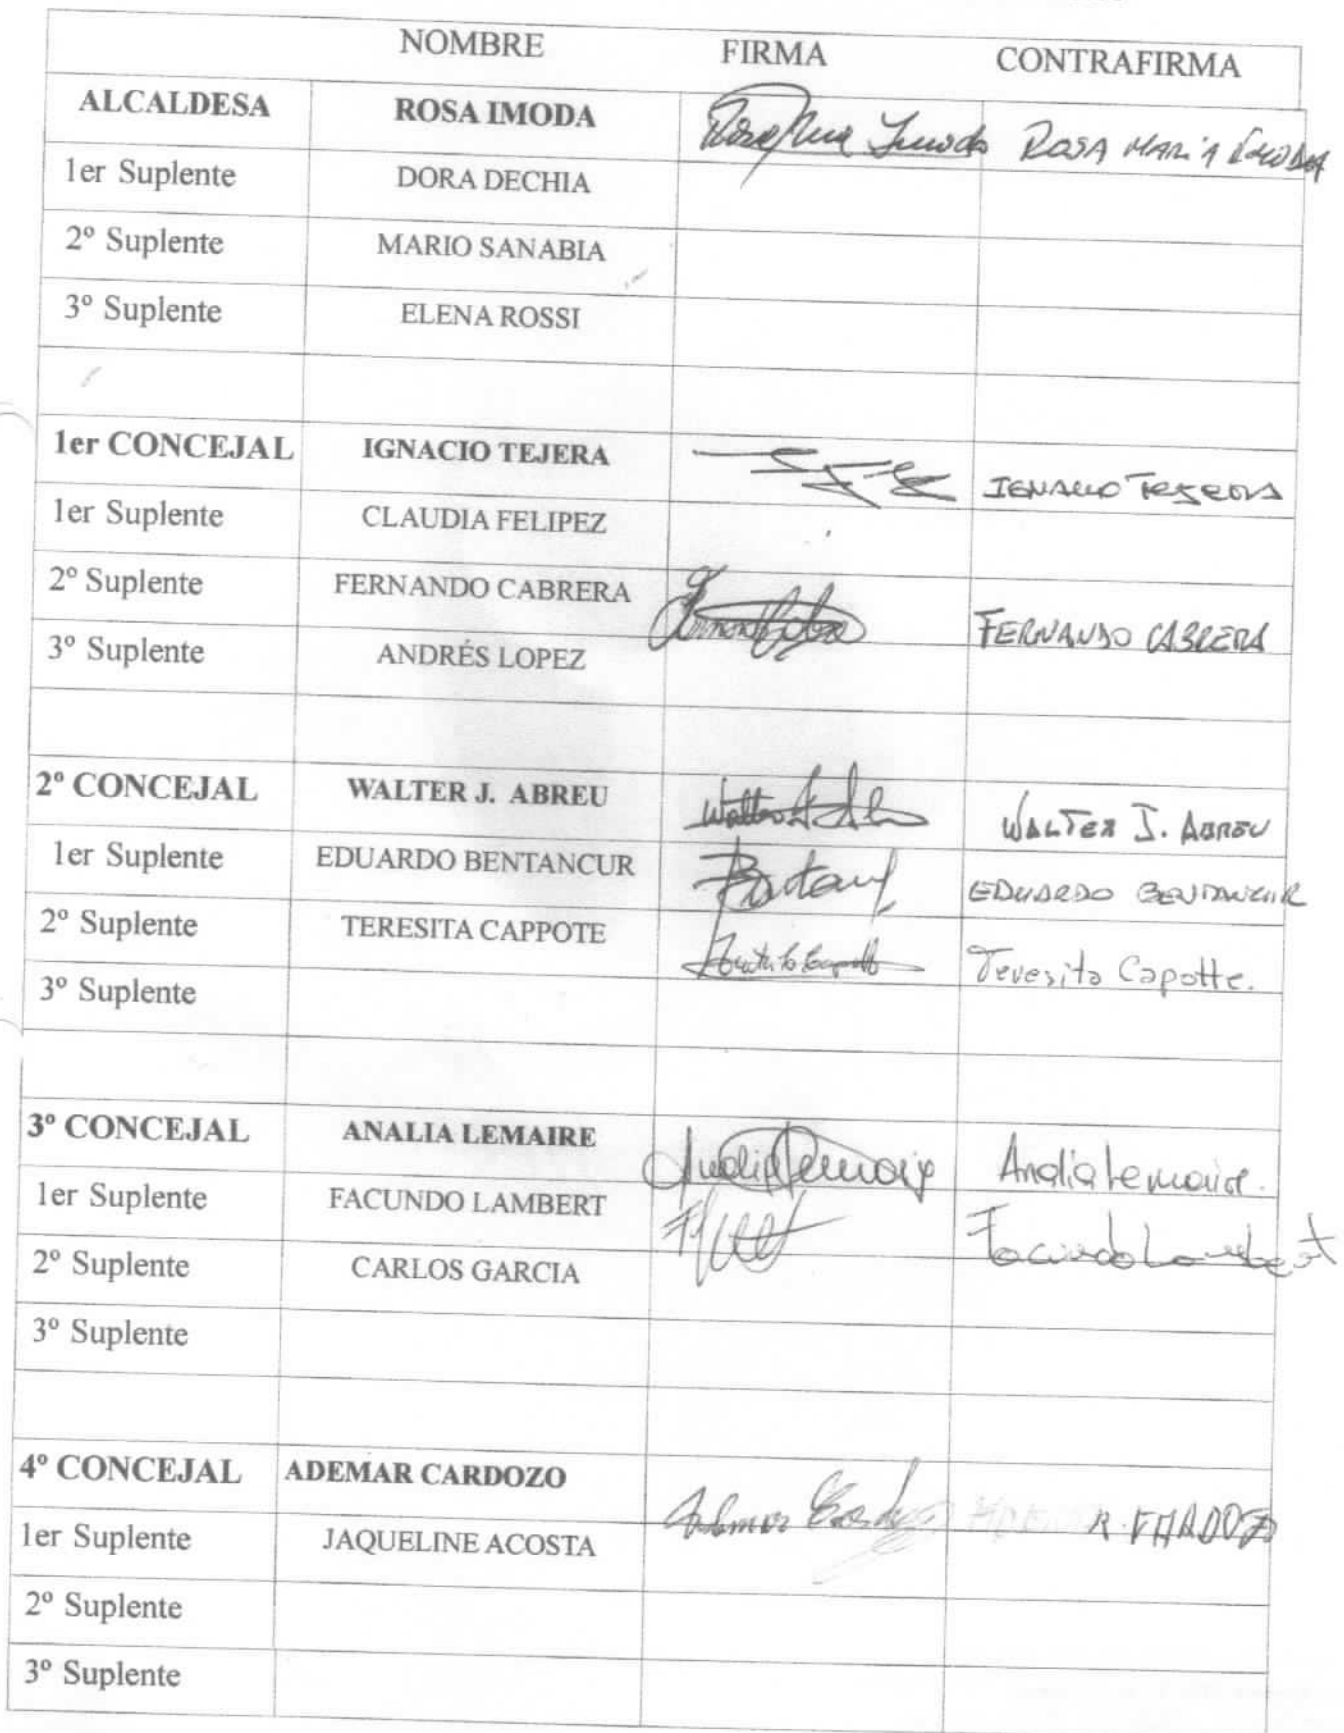 NOMBRE FIRMA CONTRAFIRMA
ALCALDESA ROSA IMODA ROSA MARIA IMODA
1er Suplente DORA DECHIA
2º Suplente MARIO SANABIA
3º Suplente ELENA ROSSI
1er CONCEJAL IGNACIO TEJERA IGNACIO TEJERA
1er Suplente CLAUDIA FELIPEZ
2º Suplente FERNANDO CABRERA FERNANDO CABRERA
3º Suplente ANDRÉS LOPEZ
2º CONCEJAL WALTER J. ABREU WALTER J. ABREU
1er Suplente EDUARDO BENTANCUR EDUARDO BENTANCUR
2º Suplente TERESITA CAPPOTE Teresita Capotte.
3º Suplente
3º CONCEJAL ANALIA LEMAIRE Analia Lemaire.
1er Suplente FACUNDO LAMBERT Facundo Lambert
2º Suplente CARLOS GARCIA
3º Suplente
4º CONCEJAL ADEMAR CARDOZO Ademar Cardozo
1er Suplente JAQUELINE ACOSTA
2º Suplente
3º Suplente